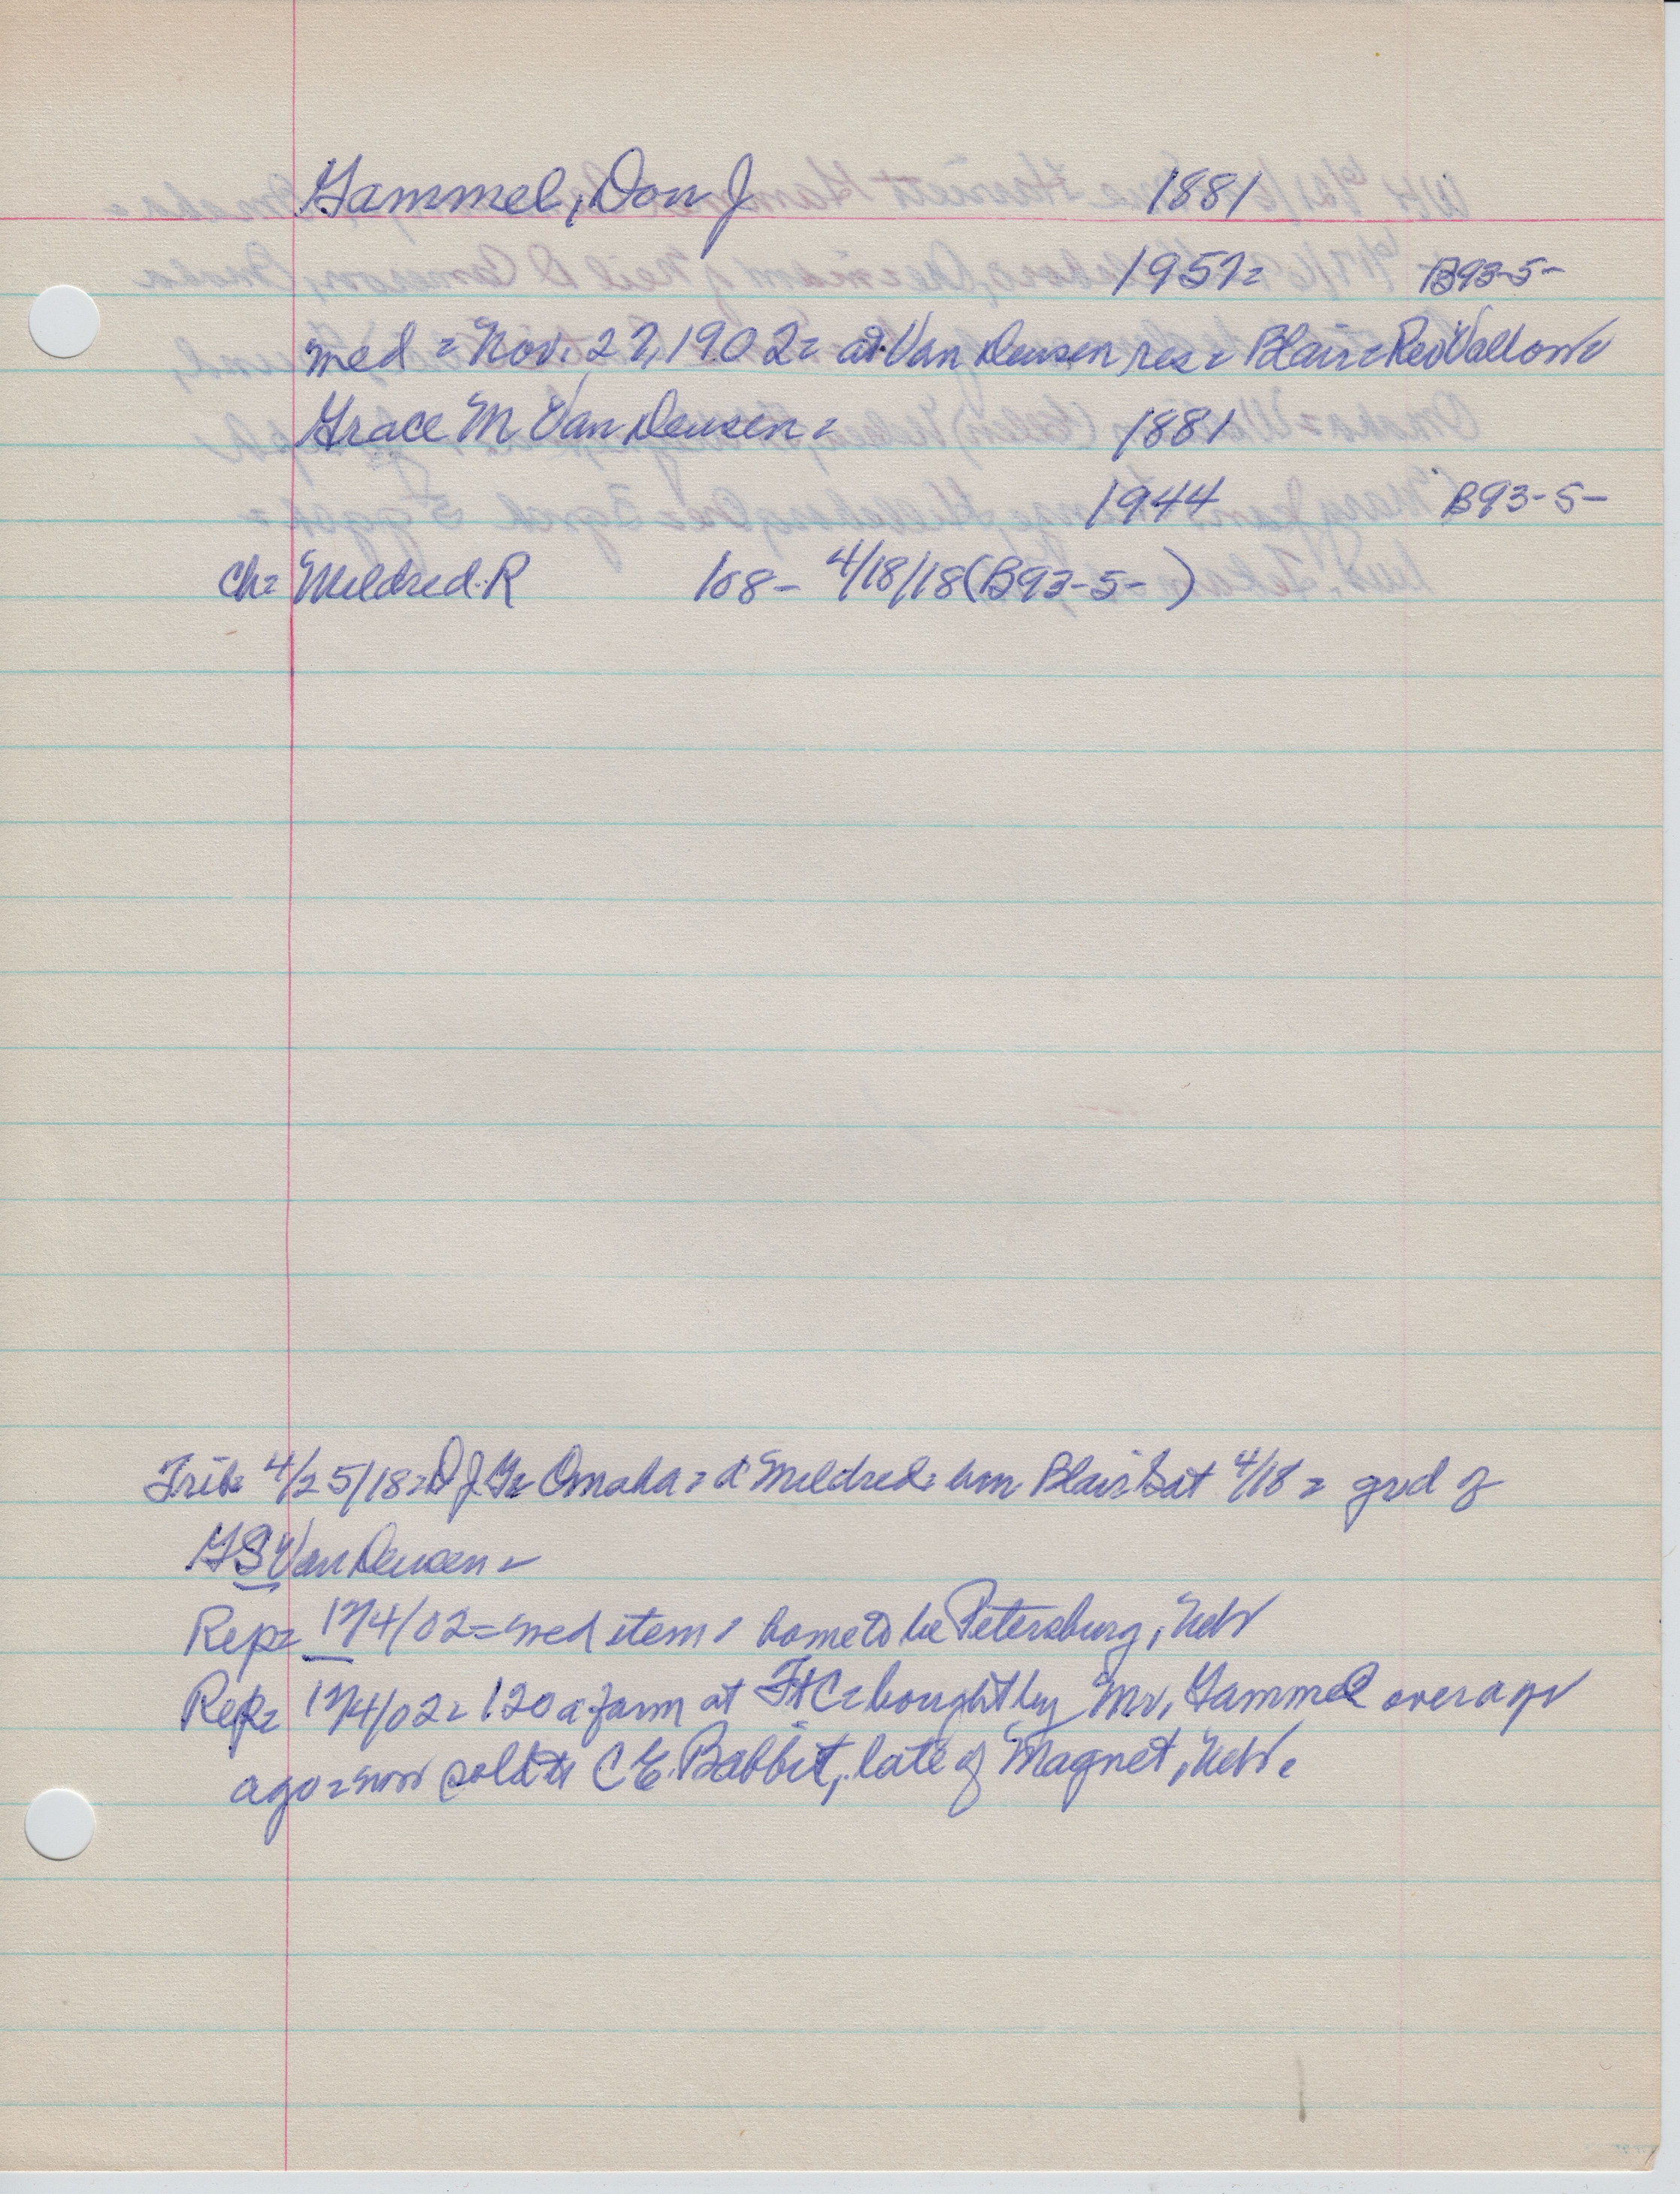 Gammel, Don J 1881
1957= B93-5-
med = Nov. 27, 1902= at Van Deusen res= Blair= Rev Vallow=
Grace M Van Deusen= 1881
1944 B93-5-
ch= Mildred R 108- 4/18/18 (B93-5- )
Trib= 4/25/18= D J G= Omaha= d Mildred= Blair Sat 4/18= grd of
G S Van Deusen=
Rep= 12/4/02= med item= home to be Petersburg, Neb
Rep= 12/4/02= 120 a farm at Ft C= bought by Mr. Gammel over a yr
ago= now sold to C E. Babbit, late of Magnet, Neb.